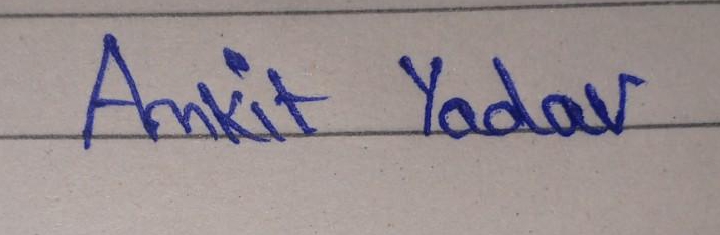 Ankit Yadav